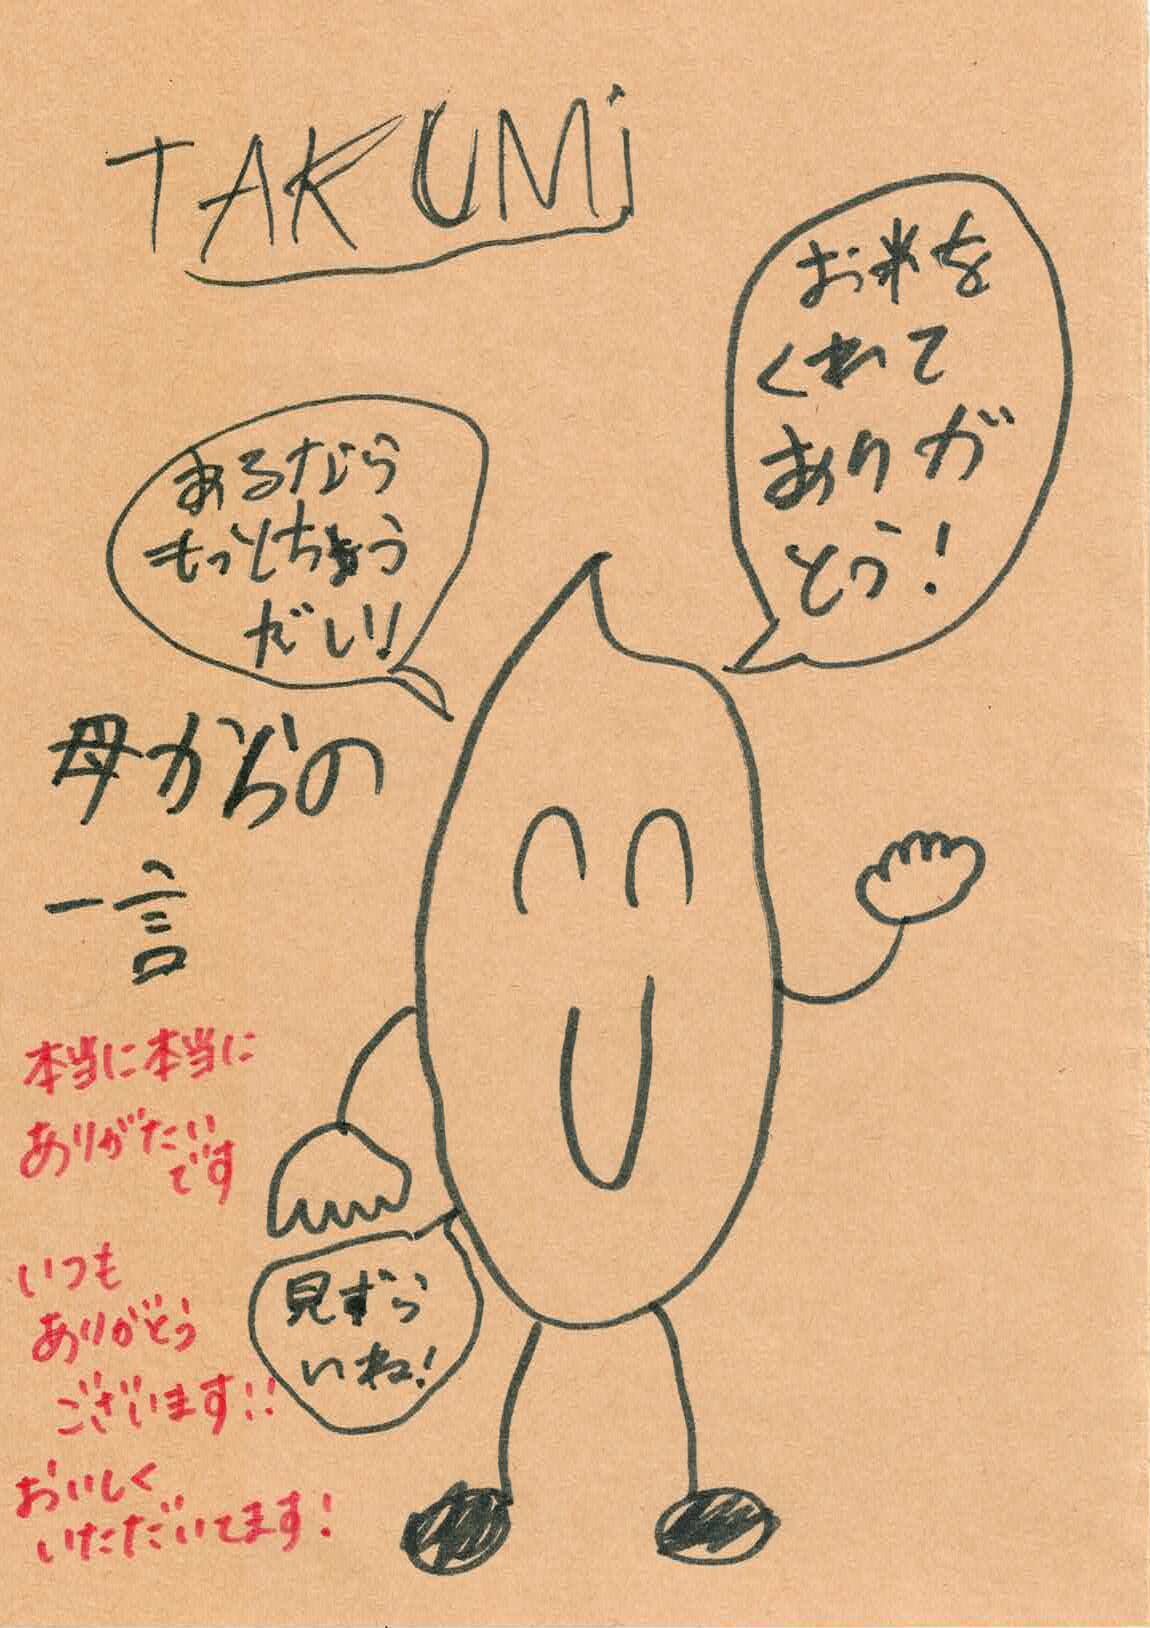 TAKUMi
お米を
くれて
ありが
とう!
あるなら
もっとちょう
だい!!
母からの
一言
本当に本当に
ありがたい
です
いつも
ありがとう
ございます!!
おいしく
いただいてます!
見ずら
いね!